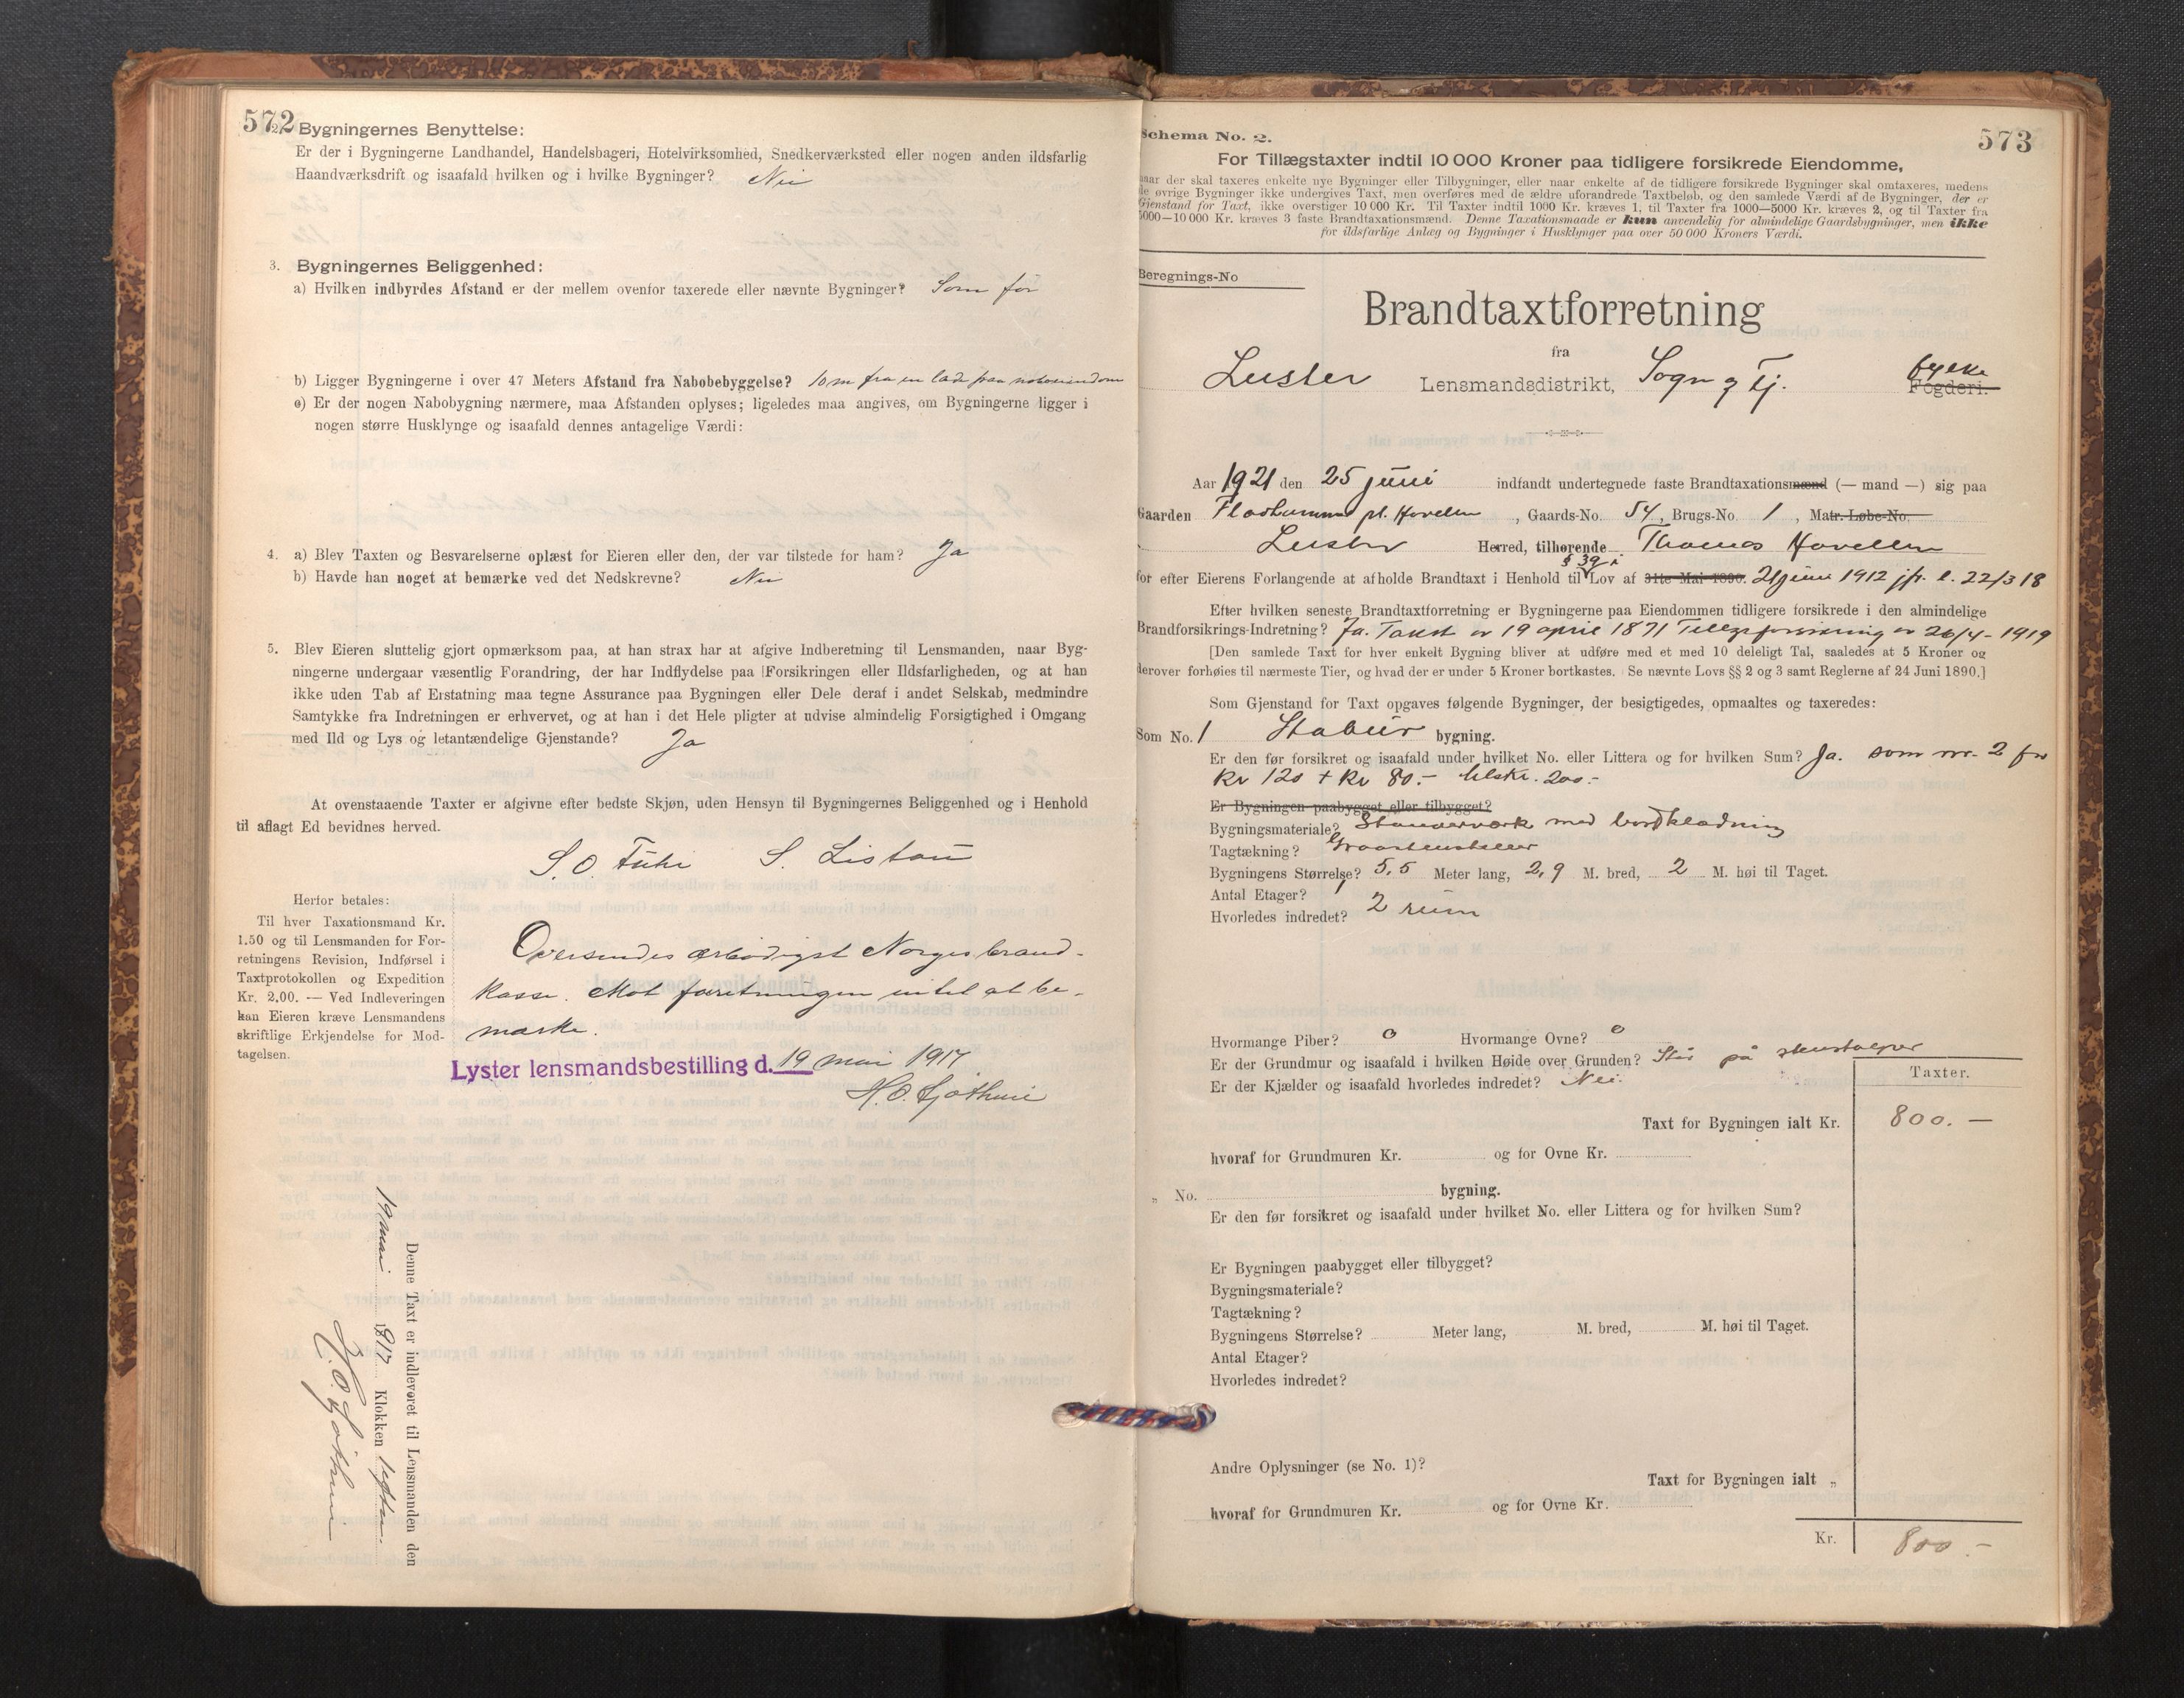 572
2. Bygningernes Benyttelse:
Er der i Bygningerne Landhandel, Handelsbageri, Hotelvirksomhed, Snedkerværksted eller nogen anden ildsfarlig
Haandværksdrift og isaafald hvilken og i hvilke Bygninger? Nei
3. Bygningernes Beliggenhed:
a) Hvilken indbyrdes Afstand er der mellem ovenfor taxerede eller nævnte Bygninger? Som før
b) Ligger Bygningerne i over 47 Meters Afstand fra Nabobebyggelse? 10 m fra en lade paa naboeiendom
c) Er der nogen Nabobygning nærmere, maa Afstanden oplyses; ligeledes maa angives, om Bygningerne ligger i
nogen større Husklynge og isaafald dennes antagelige Værdi:
4. a) Blev Taxten og Besvarelserne oplæst for Eieren eller den, der var tilstede for ham? Ja
b) Havde han noget at bemærke ved det Nedskrevne? Nei
5. Blev Eieren sluttelig gjort opmærksom paa, at han strax har at afgive Indberetning til Lensmanden, naar Byg-
ningerne undergaar væsentlig Forandring, der har Indflydelse paa Forsikringen eller Ildsfarligheden, og at han
ikke uden Tab af Erstatning maa tegne Assurance paa Bygningen eller Dele deraf i andet Selskab, medmindre
Samtykke fra Indretningen er erhvervet, og at han i det Hele pligter at udvise almindelig Forsigtighed i Omgang
med Ild og Lys og letantændelige Gjenstande? Ja
At ovenstaaende Taxter er afgivne efter bedste Skjøn, uden Hensyn til Bygningernes Beliggenhed og i Henhold
til aflagt Ed bevidnes herved.
S. O. S.
Herfor betales:
Til hver Taxationsmand Kr.
1.50 og til Lensmanden for For-
retningens Revision, Indførsel i
Taxtprotokollen og Expedition
Kr. 2.00. — Ved Indleveringen
kan Eieren kræve Lensmandens
skriftlige Erkjendelse for Mod-
tagelsen.
Oversendes ærbødigst Norges brand-
kasse. Mot forretningen intet at be-
mærke.
Lyster lensmandsbestilling d. 19 mai 1917
Denne Taxt er indleveret til Lensmanden den
19 mai 1917 Klokken
573
Schema No. 2.
For Tillægstaxter indtil 10 000 Kroner paa tidligere forsikrede Eiendomme,
naar der skal taxeres enkelte nye Bygninger eller Tilbygninger, eller naar enkelte af de tidligere forsikrede Bygninger skal omtaxeres, medens
de øvrige Bygninger ikke undergives Taxt, men overføres med de ældre uforandrede Taxtbeløb, og den samlede Værdi af de Bygninger, der er
Gjenstand for Taxt, ikke overstiger 10 000 Kr. Til Taxter indtil 1000 Kr. kræves 1, til Taxter fra 1000—5000 Kr. kræves 2, og til Taxter fra
5000—10 000 Kr. kræves 3 faste Brandtaxationsmænd. Denne Taxationsmaade er kun anvendelig for almindelige Gaardsbygninger, men ikke
for ildsfarlige Anlæg og Bygninger i Husklynger paa over 50 000 Kroners Værdi.
Beregnings-No
Brandtaxtforretning
fra
Luster Lensmandsdistrikt, Sogn og Fj. fylke Fogderi.
Aar 1921 den 25 juni indfandt undertegnede faste Brandtaxationsmænd (— mand —) sig paa
Gaarden pl. Hovellen, Gaards-No. 54, Brugs-No. 1, Matr.-Løbe-No.
Luster Herred, tilhørende Thomas Hovellen
for efter Eierens Forlangende at afholde Brandtaxt i Henhold til § 39 i Lov af 31te Mai 1890. 21 juni 1912 jfr. l. 22/3 18
Efter hvilken seneste Brandtaxtforretning er Bygningerne paa Eiendommen tidligere forsikrede i den almindelige
Brandforsikrings-Indretning? Ja. Takst av 19 april 1871 Tillegsforsikring av 26/4-1919
[Den samlede Taxt for hver enkelt Bygning bliver at udføre med et med 10 deleligt Tal, saaledes at 5 Kroner og
derover forhøies til nærmeste Tier, og hvad der er under 5 Kroner bortkastes. Se nævnte Lovs §§ 2 og 3 samt Reglerne af 24 Juni 1890.]
Som Gjenstand for Taxt opgaves følgende Bygninger, der besigtigedes, opmaaltes og taxeredes:
Som No. 1 Stabur bygning.
Er den før forsikret og isaafald under hvilket No. eller Littera og for hvilken Sum? Ja. som nr. 2 for
Kr 120 + Kr 80.- tilsk. 200.-
Er Bygningen paabygget eller tilbygget?
Bygningsmateriale? Stavverværk med bordklædning
Tagtækning? Graastensheller
Bygningens Størrelse? 5,5 Meter lang, 2,9 M. bred, 2 M. høi til Taget.
Antal Etager? 1
Hvorledes indredet? 2 rum
Hvormange Piber? 0 Hvormange Ovne? 0
Er der Grundmur og isaafald i hvilken Høide over Grunden? Står på stenstolper
Er der Kjælder og isaafald hvorledes indredet? Nei.
Taxter.
Taxt for Bygningen ialt Kr. 800.—
hvoraf for Grundmuren Kr. og for Ovne Kr.
„ No. bygning.
Er den før forsikret og isaafald under hvilket No. eller Littera og for hvilken Sum?
Er Bygningen paabygget eller tilbygget?
Bygningsmateriale?
Tagtækning?
Bygningens Størrelse? Meter lang, M. bred, M. høi til Taget.
Antal Etager?
Hvorledes indredet?
Andre Oplysninger (se No. 1)?
Taxt for Bygningen ialt „
hvoraf for Grundmuren Kr. og for Ovne Kr.
Kr. 800.-